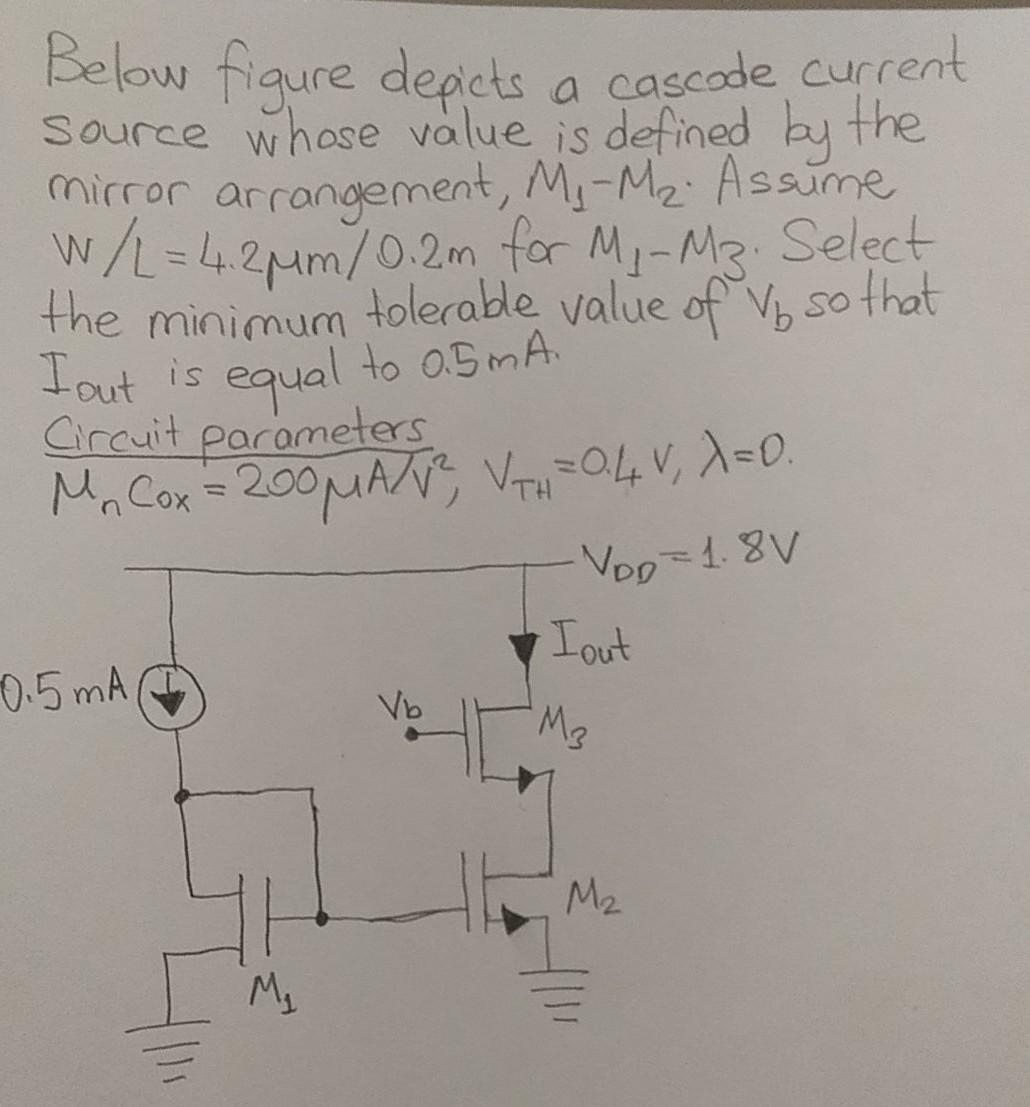 Below figure depicts a cascode current
source whose value is defined by the
mirror arrangement, M₁-M₂. Assume
W/L = 4.2μm/0.2m for M₁-M₃. Select
the minimum tolerable value of V_b so that
I_out is equal to 0.5mA.
Circuit parameters
μ_n C_ox = 200μA/V², V_TH = 0.4 V, λ=0.
V_DD = 1.8V
I_out
0.5 mA
V_b
M₃
M₂
M₁